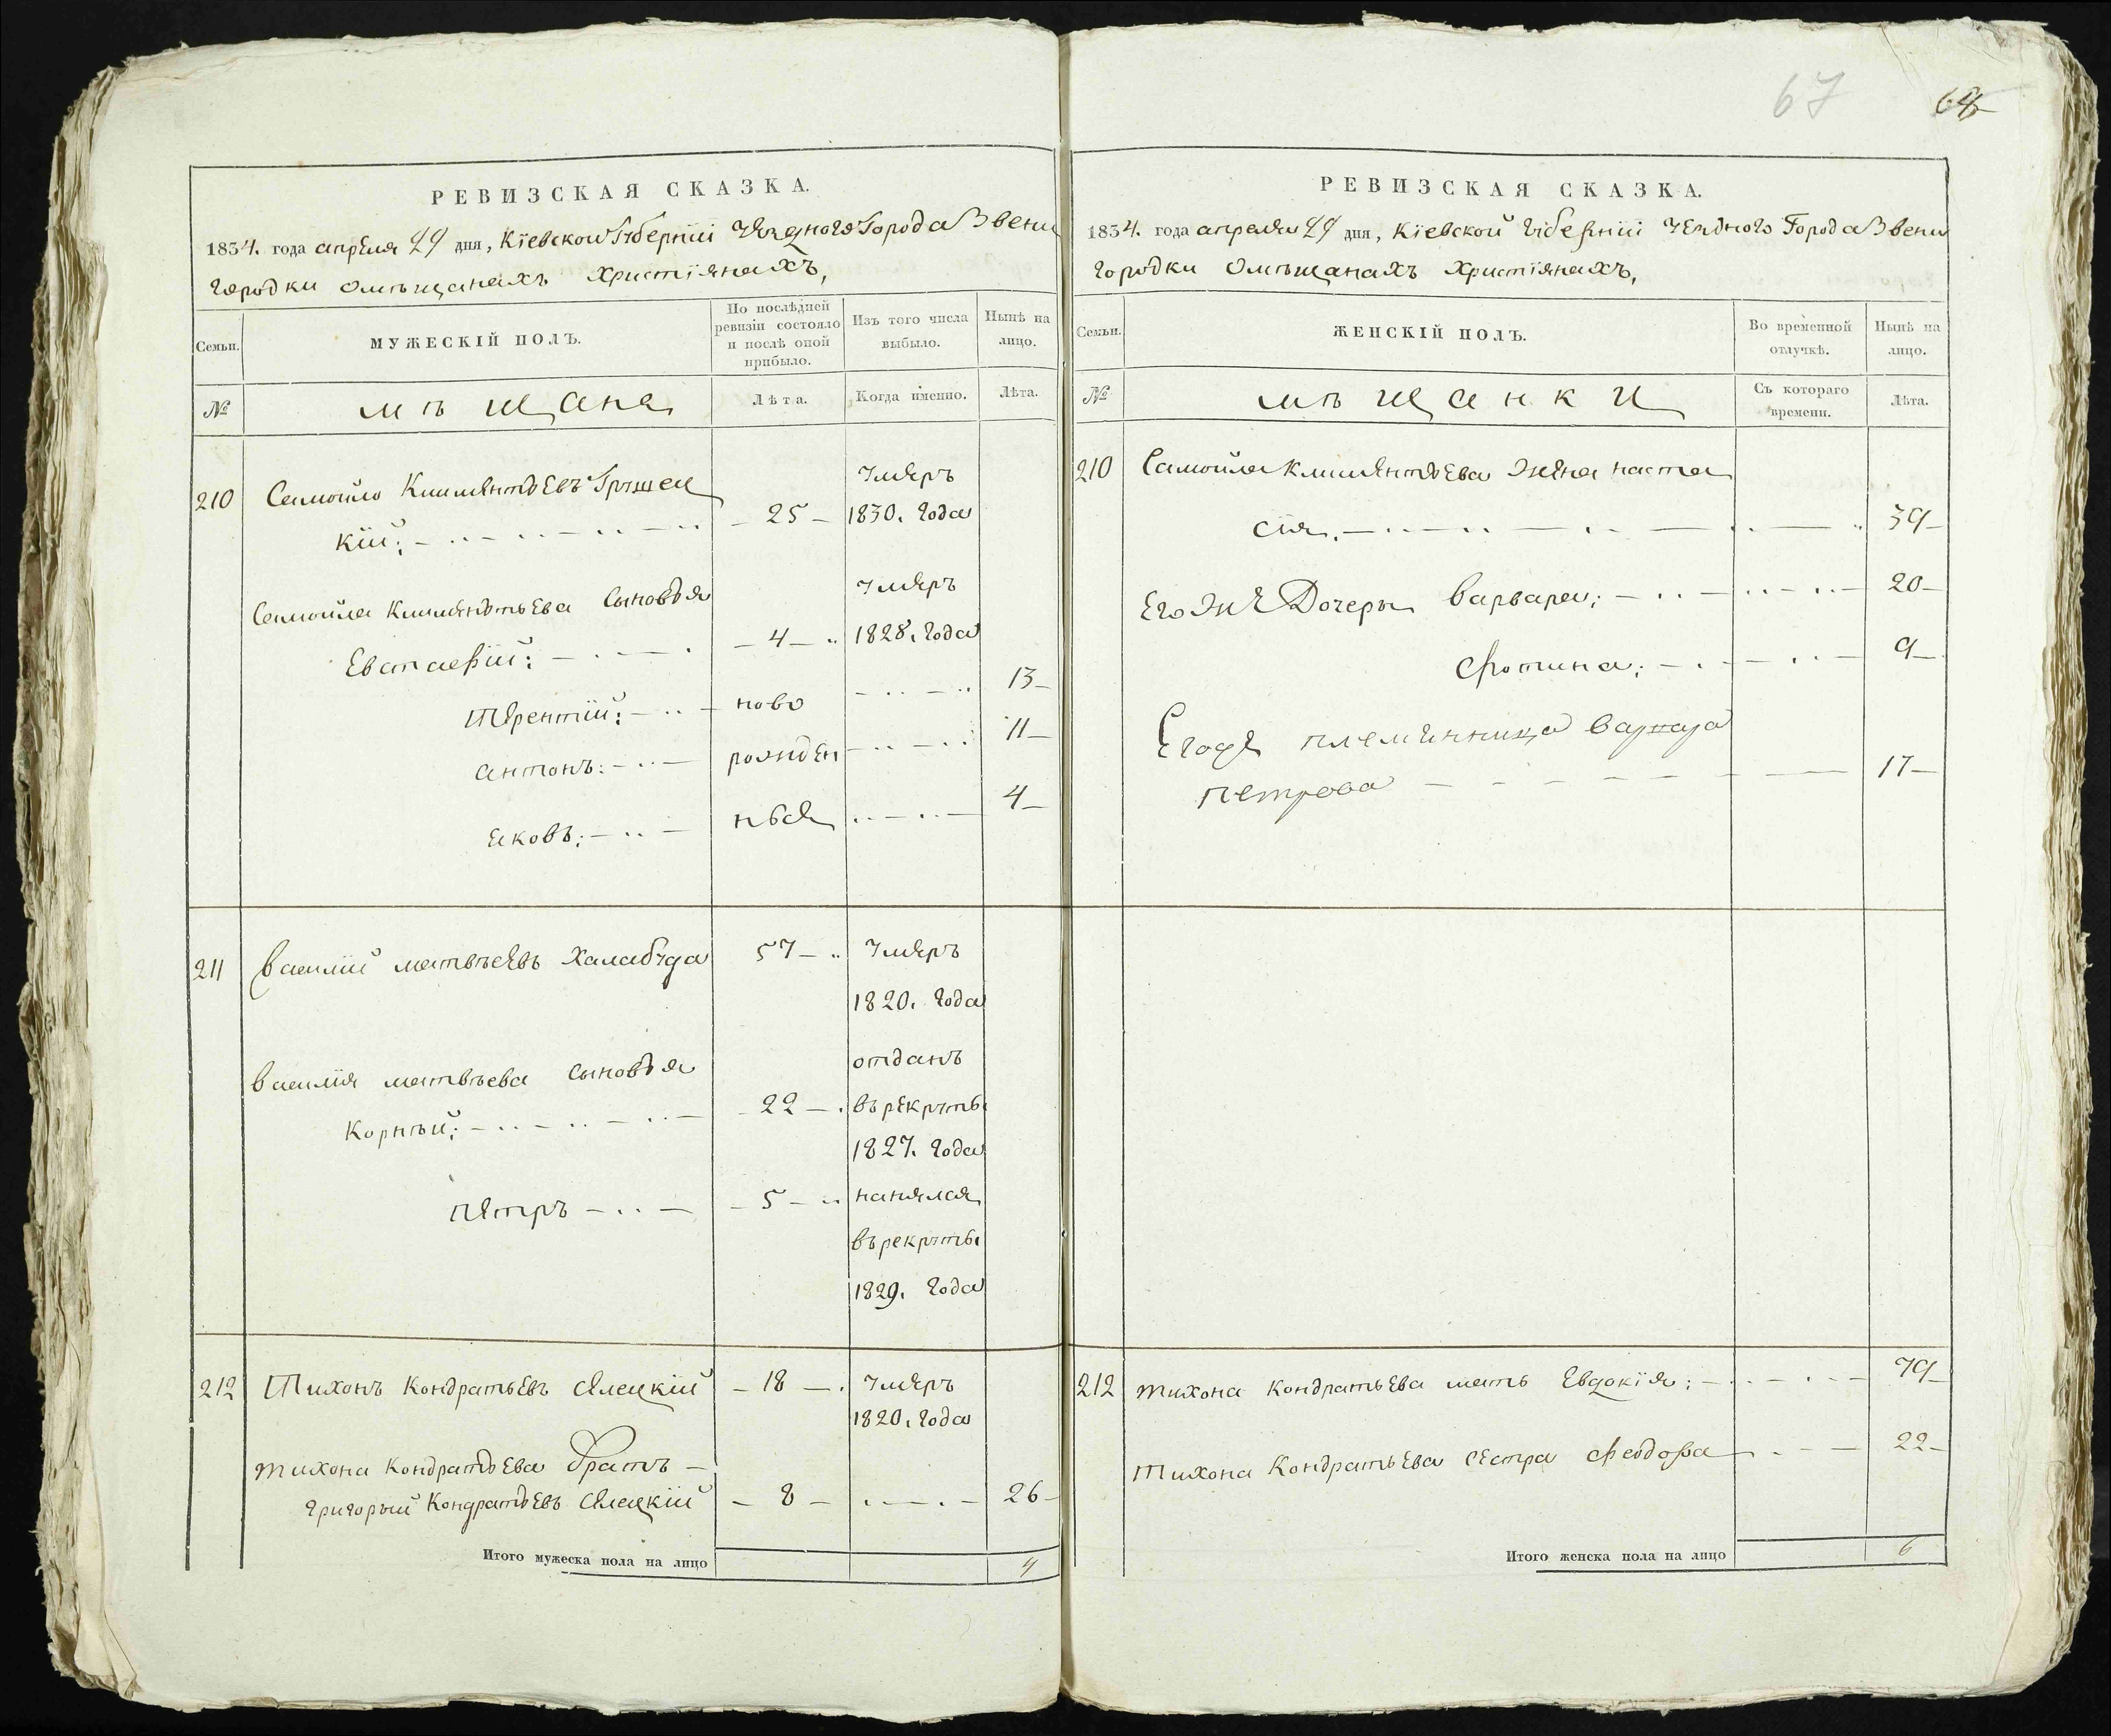 67
РЕВИЗСКАЯ СКАЗКА.
1834. года апреля 29 дня, Кіевской Губерніи Уездного Города Звени
городки Омѣщанахъ Христіянахъ,
Семьи.
МУЖЕСКІЙ ПОЛЪ.
По послѣдней ревизіи состояло и послѣ оной прибыло.
Изъ того числа выбыло.
Нынѣ на лицо.
№
мѣщане
Лѣта.
Когда именно.
Лѣта.
210 Самойло Климентьевъ Грушец
кій; 25 Умеръ 1830. года
Самойла Климентьева сыновья
Евстафій: 4 Умеръ 1828. года
Терентій: ново 13
антонъ: рожден 11
яковъ: ные 4
211 Василій матвѣевъ Халабуда 57 Умеръ
1820. года
Василія матвѣева сыновья
Корнѣй; 22 отданъ врекруты 1827. года
Петръ 5 нанялся
врекруты
1829. года
212 Тихонъ Кондратьевъ Селецкій 18 Умеръ
1820. года
Тихона Кондратьева братъ
Григорый Кондратьевъ Селецкій 8 26
Итого мужеска пола на лицо 4
РЕВИЗСКАЯ СКАЗКА.
1834. года апреля 29 дня, Кіевской Губерніи Уездного Города Звени
городки Омѣщанахъ Христіянахъ,
Семьи.
ЖЕНСКІЙ ПОЛЪ.
Во временной отлучкѣ.
Нынѣ на лицо.
№
мѣщанки
Съ котораго времени.
Лѣта.
210 Самойла Климентьева Жена наста
сія, 39
Егоже Дочеры Варвара; 20
Фотина; 9
Егоже племинница Варвара
Петрова 17
212 Тихона Кондратьева мать Евдокія; 79
Тихона Кондратьева сестра Феодора 22
Итого женска пола на лицо 6